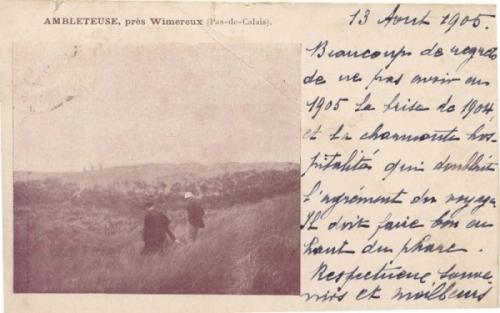 AMBLETEUSE, près Wimereux (Pas-de-Calais).
13 Aout 1905.
Beaucoup de regrets
de ne pas avoir en
1905 la brise de 1904
et la charmante hos-
pitalité qui doublait
l'agrément du voyage
Il doit faire bon au
haut du phare.
Respectueux souve-
nirs et meilleurs